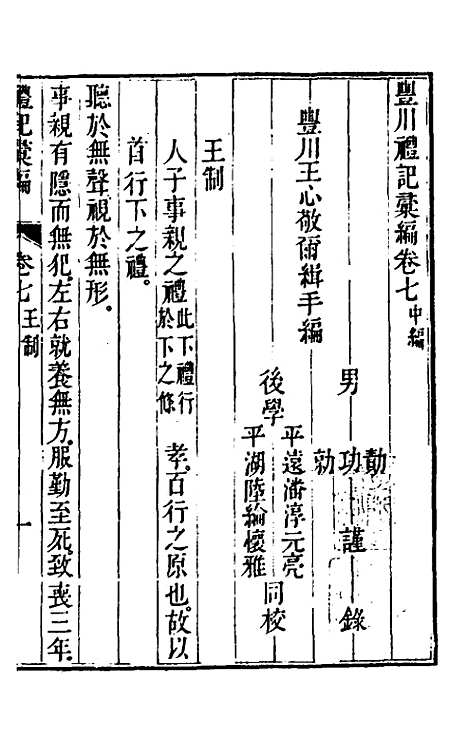 豐川禮記彙編卷七中編
男
勍功勛
謹錄
豐川王心敬爾緝手編
後學
平遠潘淳元亮
平湖陸綸懷雅
同校
王制
人子事親之禮此下禮行於下之條孝百行之原也故以
首行下之禮。
聽於無聲視於無形。
事親有隱而無犯左右就養無方服勤至死致喪三年
禮記彙編 卷七王制 一